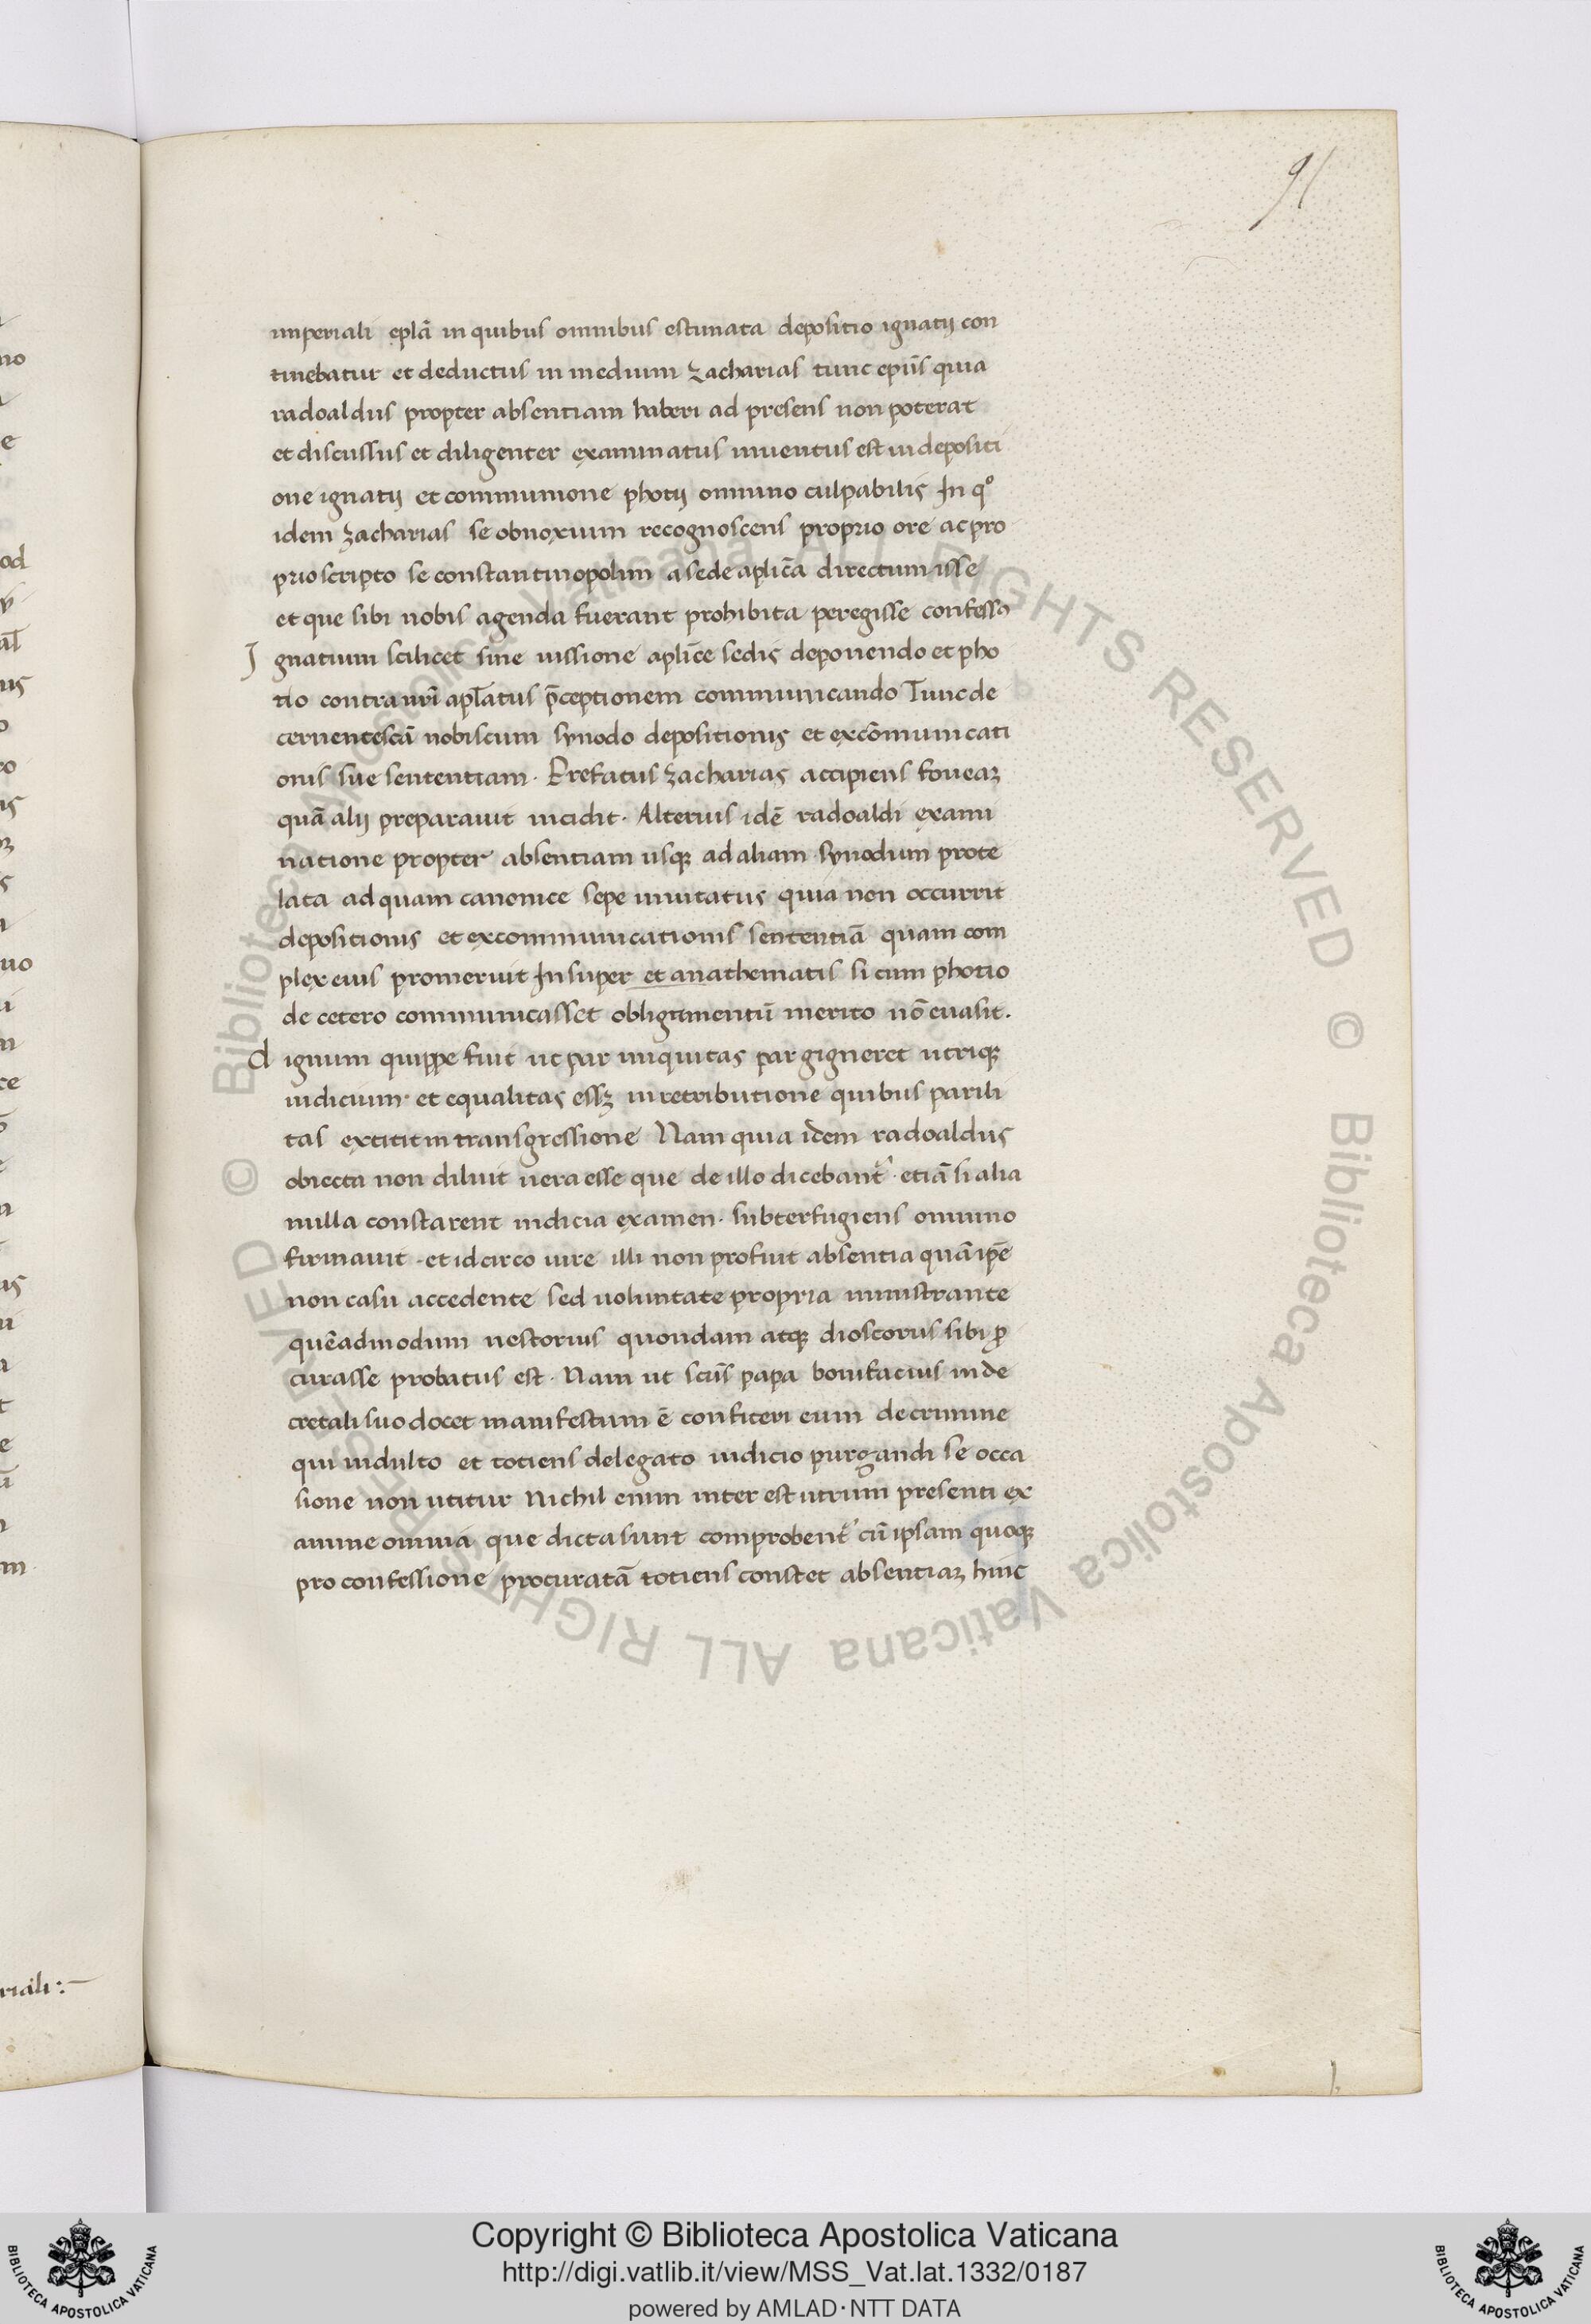 91
imperiali epl̃a in quibus omnibus estimata depositio ignatij con
tinebatur et deductus in medium zacharias tunc ep̃us quia
radoaldus propter absentiam haberi ad presens non poterat
et discussus et diligenter examinatus inuentus est in depositi
one ignatij et communione photij omnino culpabilis In qͦ
idem zacharias se obnoxium recognoscens proprio ore ac pro
prio scripto se constantinopolim a sede aplic̃a directum isse
et que sibi nobis agenda fuerant prohibita peregisse confesso
Ignatium scilicet sine iussione aplic̃e sedis deponendo et pho
tio contra nr̃i apl̃atus p̃ceptionem communicando Tunc de
cernente sc̃a nobiscum synodo depositionis et excõmunicati
onis sue sententiam. Prefatus zacharias accipiens foueaꝫ
quã alij preparauit incidit. Alterius idẽ radoaldi exami
natione propter absentiam usqꝫ ad aliam synodum prote
lata ad quam canonice sepe inuitatus quia non occurrit
depositionis et excommunicationis sententiã quam com
plex eius promeruit Insuper et anathematis si cum photio
de cetero communicasset obligamentũ merito nõ euasit.
dignum quippe fuit ut par iniquitas par gigneret utriqꝫ
iudicium. et equalitas essꝫ in retributione quibus parili
tas extitit in transgressione Nam quia idem radoaldus
obiecta non diluit uera esse que de illo dicebant᷑. etiã si alia
nulla constarent indicia examen. subterfugiens omnino
firmauit. et idcirco iure illi non profuit absentia quã ip̃e
non casu accedente sed uoluntate propria ministrante
quẽadmodum nestorius quondam atqꝫ dioscorus sibi ꝓ
curasse probatus est. Nam ut sc̃us papa bonifacius in de
cretali suo docet manifestum ẽ confiteri eum de crimine
qui indulto et totiens delegato iudicio purgandi se occa
sione non utitur Nichil enim inter est utrum presenti ex
amine omnia que dicta sunt comprobent᷑ cũ ipsam quoqꝫ
pro confessione procuratã totiens constet absentiaꝫ hinc
riali:
© Biblioteca Apostolica Vaticana ALL RIGHTS RESERVED © Biblioteca Apostolica Vaticana ALL RIGHTS RESERVED
Copyright © Biblioteca Apostolica Vaticana
http://digi.vatlib.it/view/MSS_Vat.lat.1332/0187
powered by AMLAD·NTT DATA
BIBLIOTECA APOSTOLICA VATICANA
BIBLIOTECA APOSTOLICA VATICANA